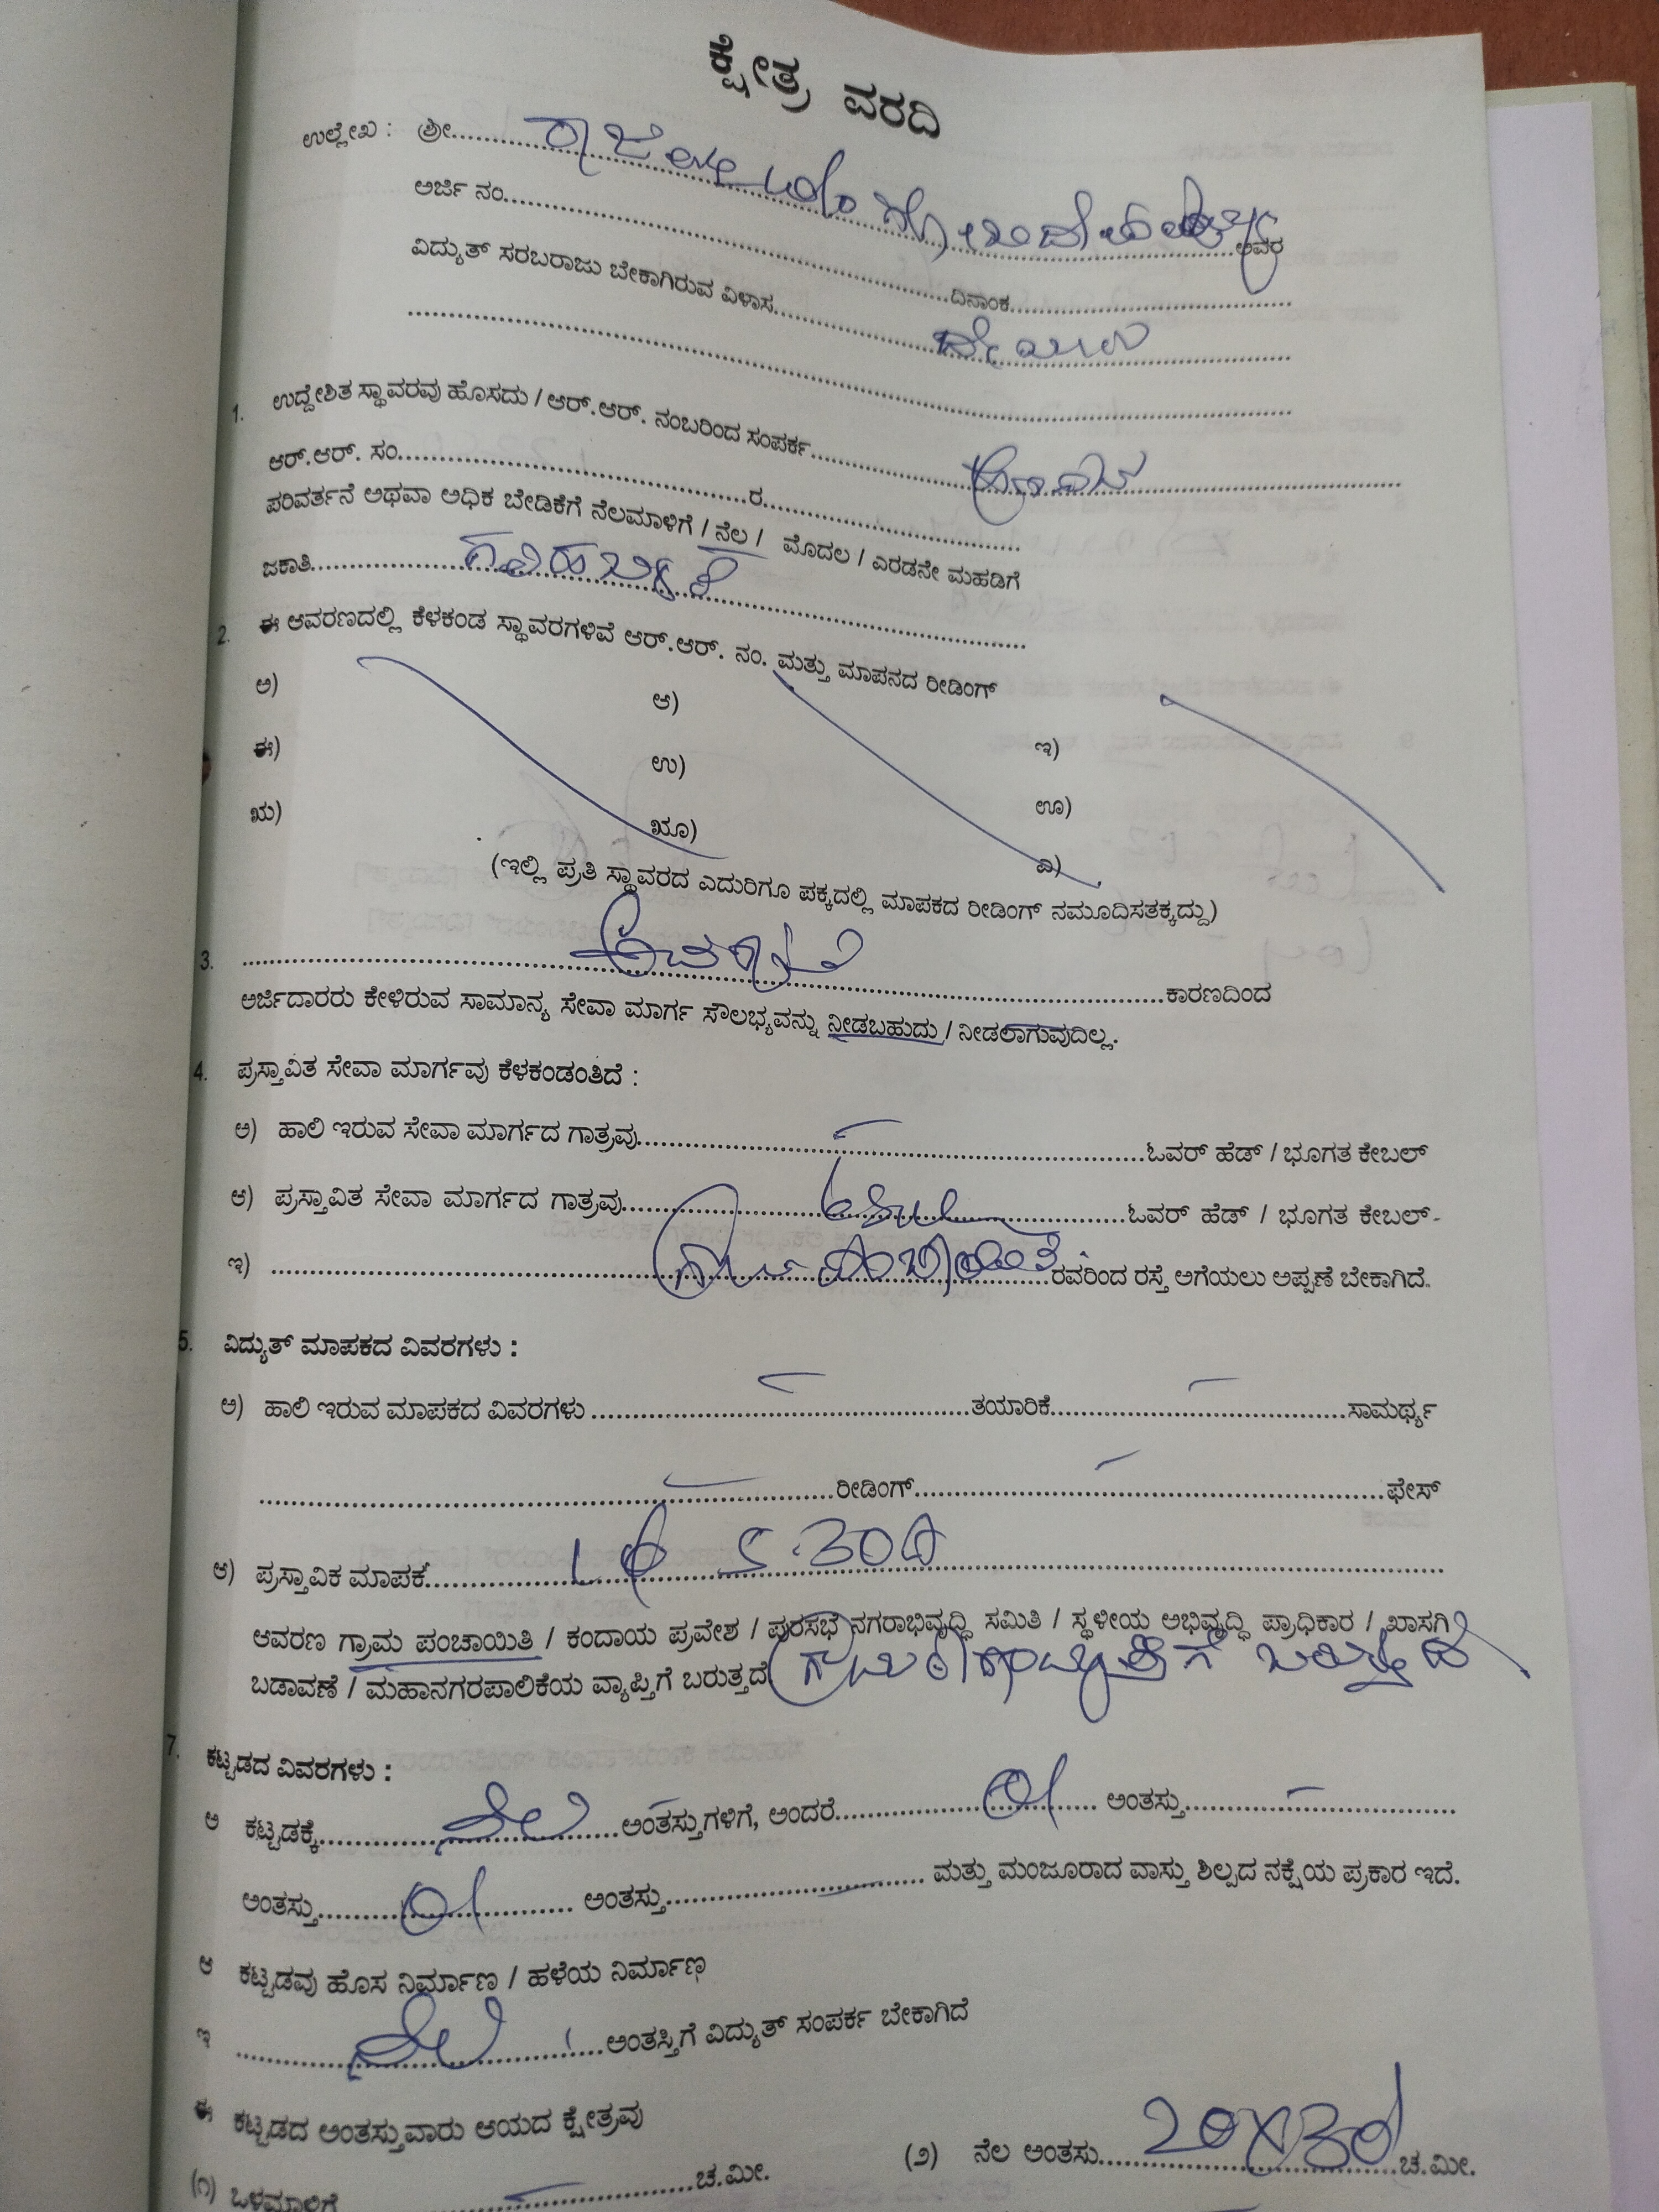 ಕ್ಷೇತ್ರ ವರದಿ
ಉಲ್ಲೇಖ : ಶ್ರೀ.......... ಅವರ
ಅರ್ಜಿ ನಂ..........ದಿನಾಂಕ..........
ವಿದ್ಯುತ್ ಸರಬರಾಜು ಬೇಕಾಗಿರುವ ವಿಳಾಸ..........
1. ಉದ್ದೇಶಿತ ಸ್ಥಾವರವು ಹೊಸದು / ಆರ್.ಆರ್. ನಂಬರಿಂದ ಸಂಪರ್ಕ..........
ಆರ್.ಆರ್. ಸಂ..........ರ..........
ಪರಿವರ್ತನೆ ಅಥವಾ ಅಧಿಕ ಬೇಡಿಕೆಗೆ ನೆಲಮಾಳಿಗೆ / ನೆಲ / ಮೊದಲ / ಎರಡನೇ ಮಹಡಿಗೆ
ಜಕಾತಿ..........
2. ಈ ಆವರಣದಲ್ಲಿ ಕೆಳಕಂಡ ಸ್ಥಾವರಗಳಿವೆ ಆರ್.ಆರ್. ನಂ. ಮತ್ತು ಮಾಪನದ ರೀಡಿಂಗ್
ಅ) ಆ) ಇ)
ಈ) ಉ) ಊ)
ಋ) ೠ) ಎ)
(ಇಲ್ಲಿ ಪ್ರತಿ ಸ್ಥಾವರದ ಎದುರಿಗೂ ಪಕ್ಕದಲ್ಲಿ ಮಾಪಕದ ರೀಡಿಂಗ್ ನಮೂದಿಸತಕ್ಕದ್ದು)
3. ..........ಕಾರಣದಿಂದ
ಅರ್ಜಿದಾರರು ಕೇಳಿರುವ ಸಾಮಾನ್ಯ ಸೇವಾ ಮಾರ್ಗ ಸೌಲಭ್ಯವನ್ನು ನೀಡಬಹುದು / ನೀಡಲಾಗುವುದಿಲ್ಲ.
4. ಪ್ರಸ್ತಾವಿತ ಸೇವಾ ಮಾರ್ಗವು ಕೆಳಕಂಡಂತಿದೆ :
ಅ) ಹಾಲಿ ಇರುವ ಸೇವಾ ಮಾರ್ಗದ ಗಾತ್ರವು..........ಓವರ್ ಹೆಡ್ / ಭೂಗತ ಕೇಬಲ್
ಆ) ಪ್ರಸ್ತಾವಿತ ಸೇವಾ ಮಾರ್ಗದ ಗಾತ್ರವು..........ಓವರ್ ಹೆಡ್ / ಭೂಗತ ಕೇಬಲ್
ಇ) ..........ರವರಿಂದ ರಸ್ತೆ ಅಗೆಯಲು ಅಪ್ಪಣೆ ಬೇಕಾಗಿದೆ.
5. ವಿದ್ಯುತ್ ಮಾಪಕದ ವಿವರಗಳು :
ಅ) ಹಾಲಿ ಇರುವ ಮಾಪಕದ ವಿವರಗಳು ..........ತಯಾರಿಕೆ..........ಸಾಮರ್ಥ್ಯ
..........ರೀಡಿಂಗ್..........ಫೇಸ್
ಆ) ಪ್ರಸ್ತಾವಿಕ ಮಾಪಕ..........
ಆವರಣ ಗ್ರಾಮ ಪಂಚಾಯಿತಿ / ಕಂದಾಯ ಪ್ರವೇಶ / ಪುರಸಭೆ ನಗರಾಭಿವೃದ್ಧಿ ಸಮಿತಿ / ಸ್ಥಳೀಯ ಅಭಿವೃದ್ಧಿ ಪ್ರಾಧಿಕಾರ / ಖಾಸಗಿ
ಬಡಾವಣೆ / ಮಹಾನಗರಪಾಲಿಕೆಯ ವ್ಯಾಪ್ತಿಗೆ ಬರುತ್ತದೆ
7. ಕಟ್ಟಡದ ವಿವರಗಳು :
ಅ ಕಟ್ಟಡಕ್ಕೆ.......... ನೆಲ ಅಂತಸ್ತುಗಳಿಗೆ, ಅಂದರೆ.......... 01 ಅಂತಸ್ತು..........
ಅಂತಸ್ತು.......... 01 ಅಂತಸ್ತು.......... ಮತ್ತು ಮಂಜೂರಾದ ವಾಸ್ತು ಶಿಲ್ಪದ ನಕ್ಷೆಯ ಪ್ರಕಾರ ಇದೆ.
ಆ ಕಟ್ಟಡವು ಹೊಸ ನಿರ್ಮಾಣ / ಹಳೆಯ ನಿರ್ಮಾಣ
ಇ .......... ನೆಲ ಅಂತಸ್ತಿಗೆ ವಿದ್ಯುತ್ ಸಂಪರ್ಕ ಬೇಕಾಗಿದೆ
ಈ ಕಟ್ಟಡದ ಅಂತಸ್ತುವಾರು ಆಯದ ಕ್ಷೇತ್ರವು
(೧) ಒಳಮಾಳಿಗೆ..........ಚ.ಮೀ. (೨) ನೆಲ ಅಂತಸು.......... 20X30 ಚ.ಮೀ.